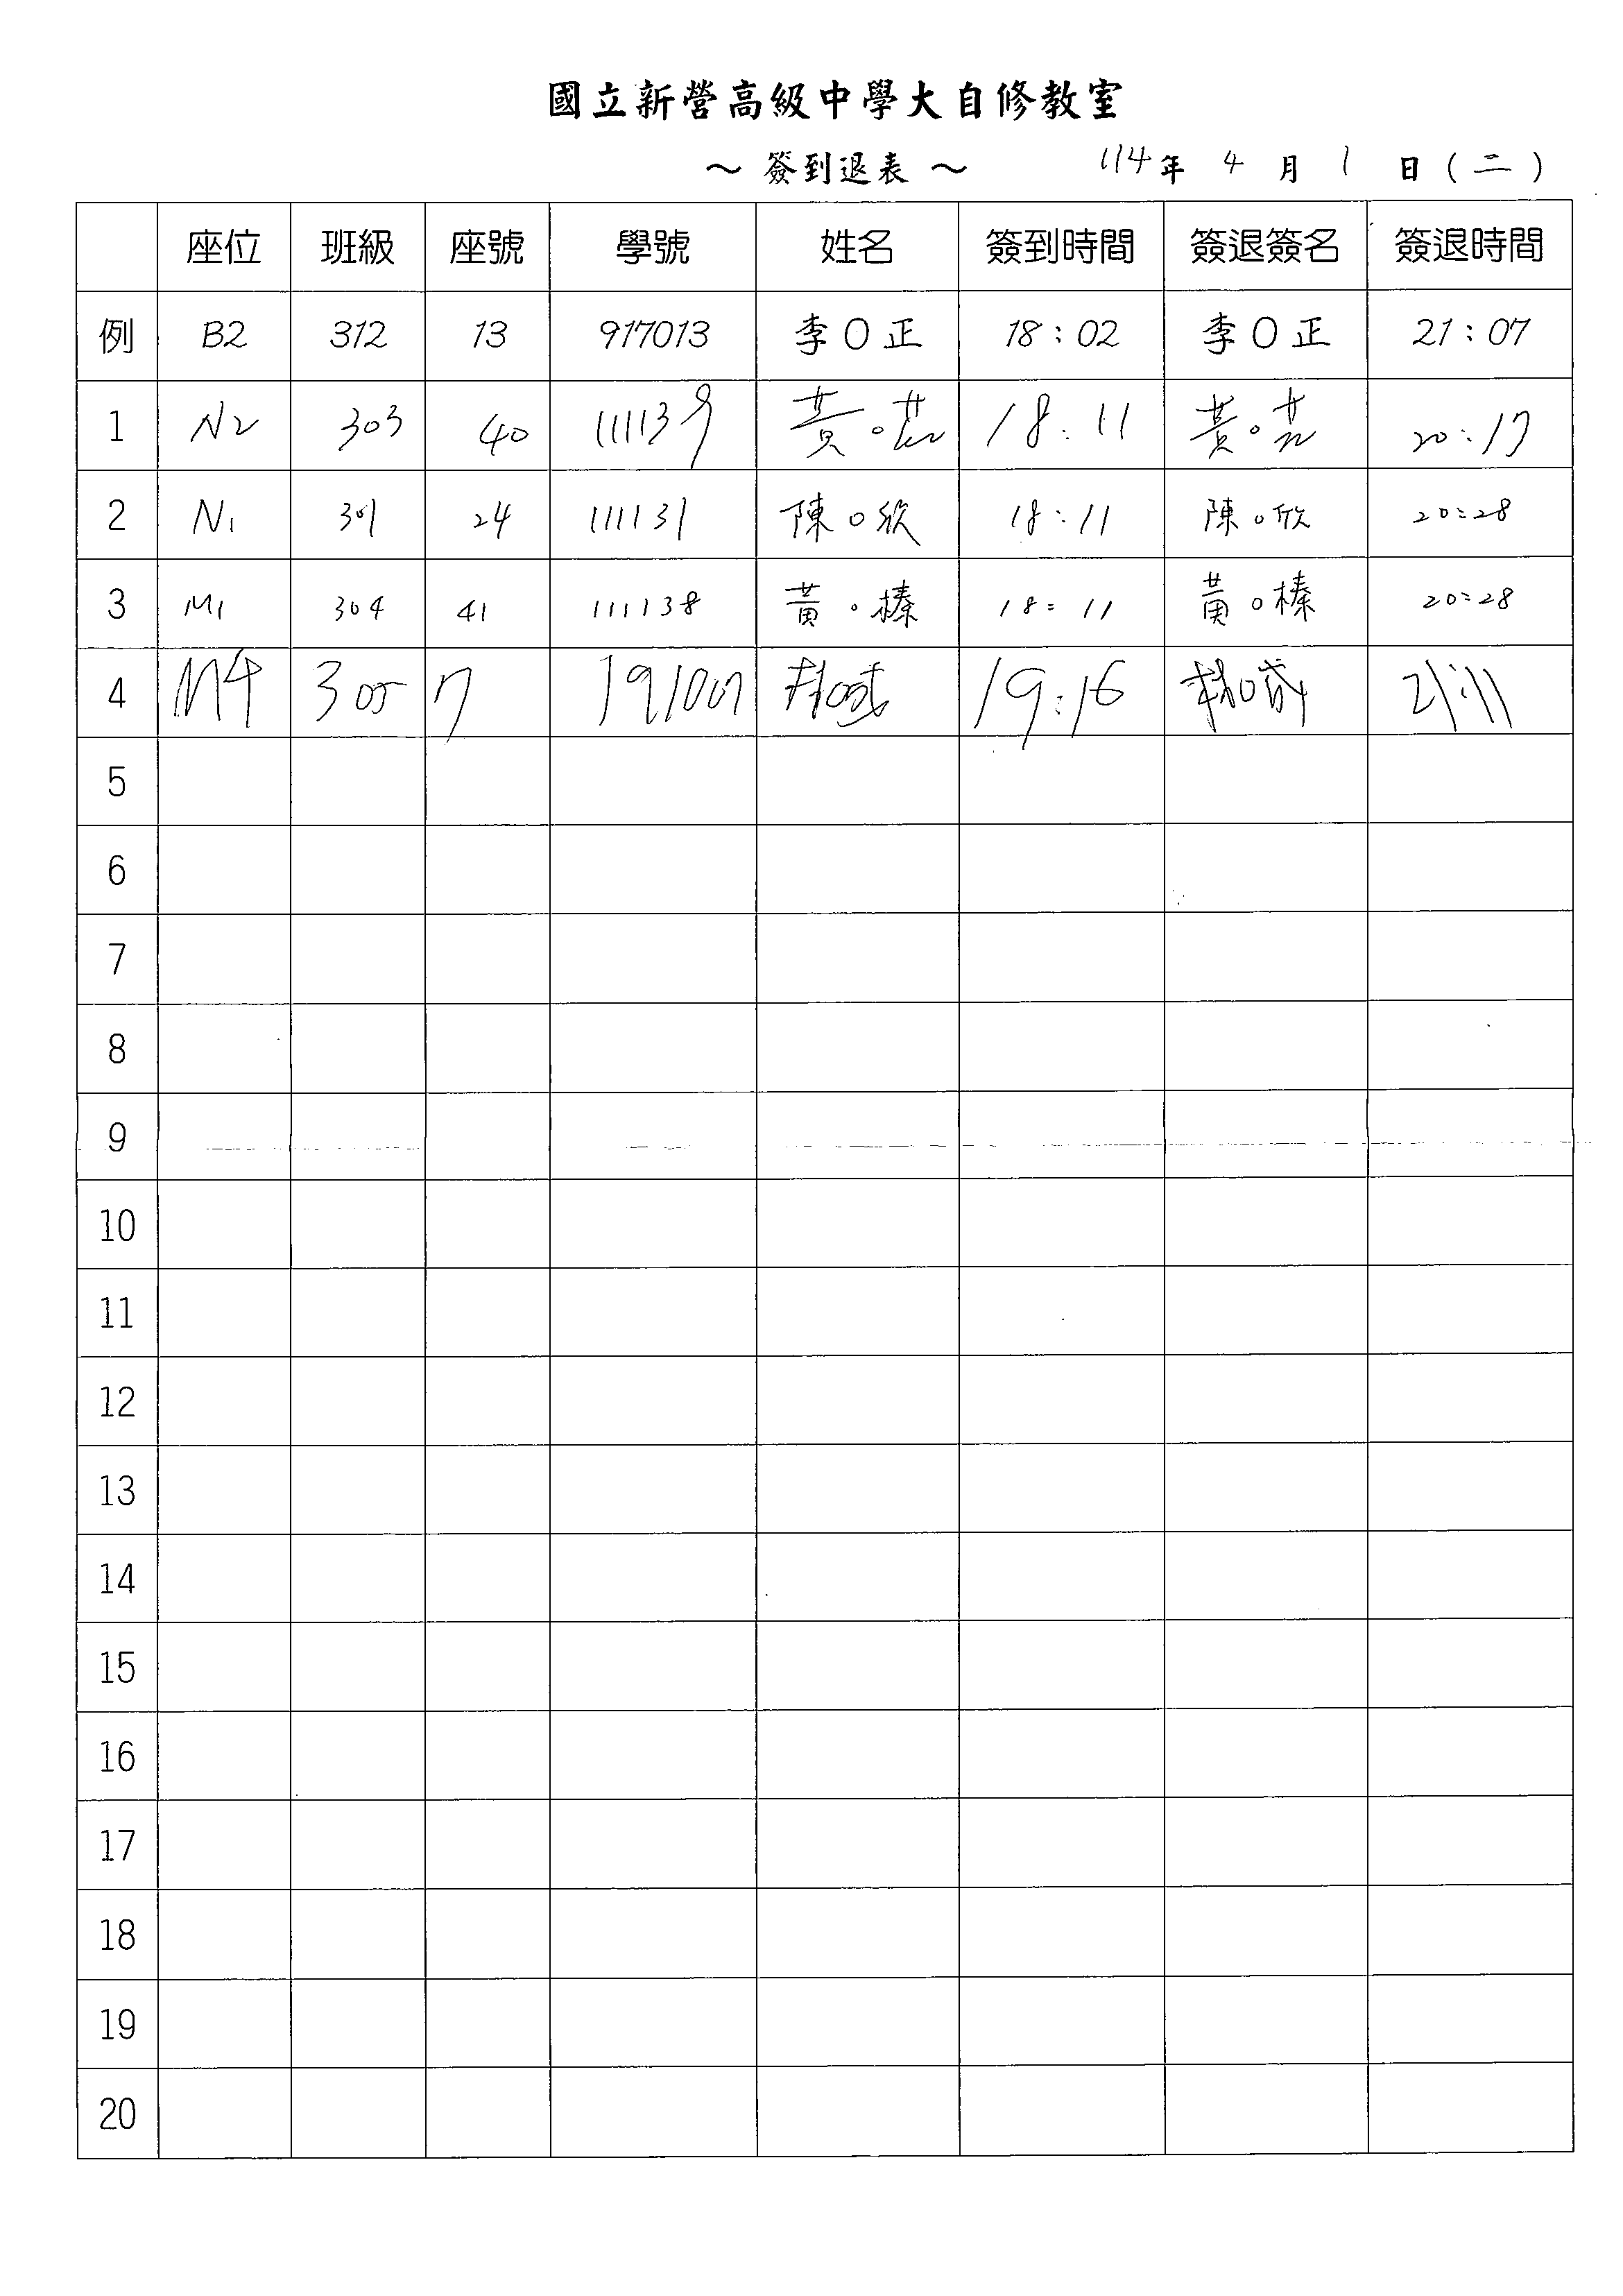 國立新營高級中學大自修教室
～ 簽到退表 ～ 114年 4 月 1 日(二)
座位 班級 座號 學號 姓名 簽到時間 簽退簽名 簽退時間
例 B2 312 13 917013 李O正 18:02 李O正 21:07
1 N2 303 40 111139 黃○芸 18:11 黃○芸 20:17
2 N1 301 24 111131 陳○欣 18:11 陳○欣 20:28
3 M1 304 41 111138 黃○榛 18:11 黃○榛 20:28
4 M4 305 7 191007 19:16 21:11
5
6
7
8
9
10
11
12
13
14
15
16
17
18
19
20